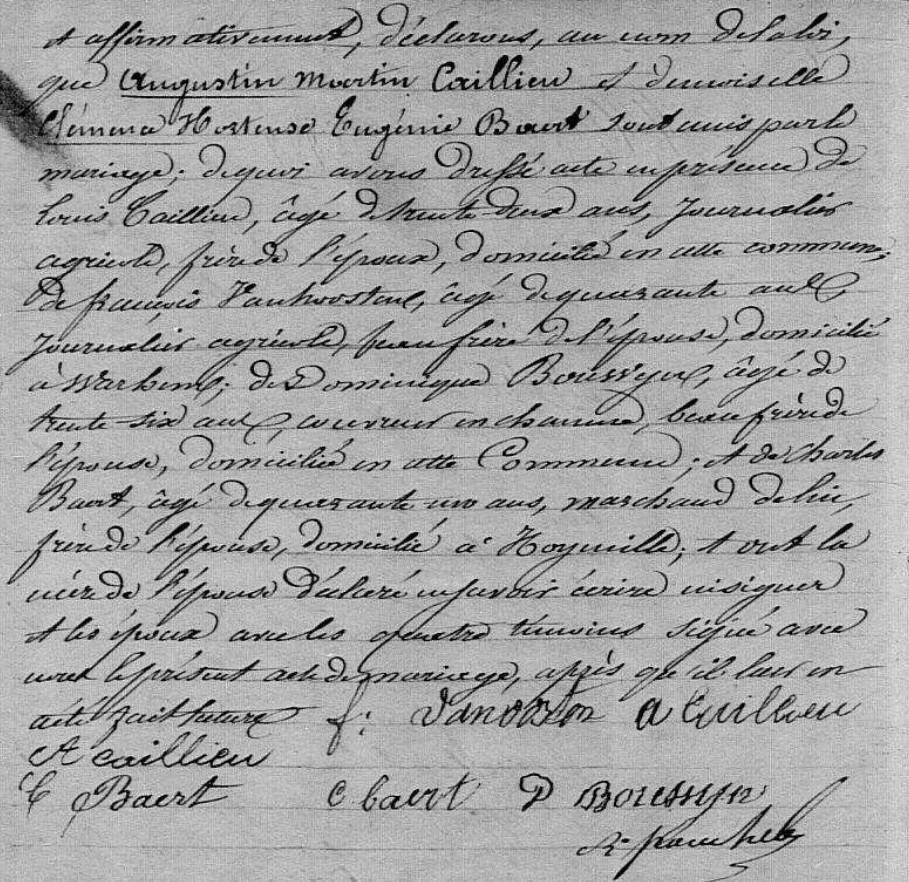 et affirmativement, déclarons, au nom de la loi,
que Augustin Martin Caillieu et demoiselle
Clémence Hortense Eugénie Baert sont unis par le
mariage; de quoi avons dressé acte en présence de
Louis Caillieu, âgé de trente-deux ans, journalier
agricole, frère de l'époux, domicilié en cette commune;
de françois Vanhoostene, âgé de quarante ans,
journalier agricole, beau frère de l'épouse, domicilié
à Warhem; de Dominique Boussyn, âgé de
trente-six ans, couvreur en chaume, beau frère de
l'épouse, domicilié en cette Commune; et de Charles
Baert, âgé de quarante un ans, marchand de lin,
frère de l'épouse, domicilié à Hoymille; et ont la
mère de l'épouse déclaré ne savoir écrire ni signer
et les époux avec les quatre témoins signé avec
nous le présent acte de mariage, après qu'il leur en
a été fait lecture f: Vanoosten A Cuillieu
A caillieu
C Baert C baert D Boussyn